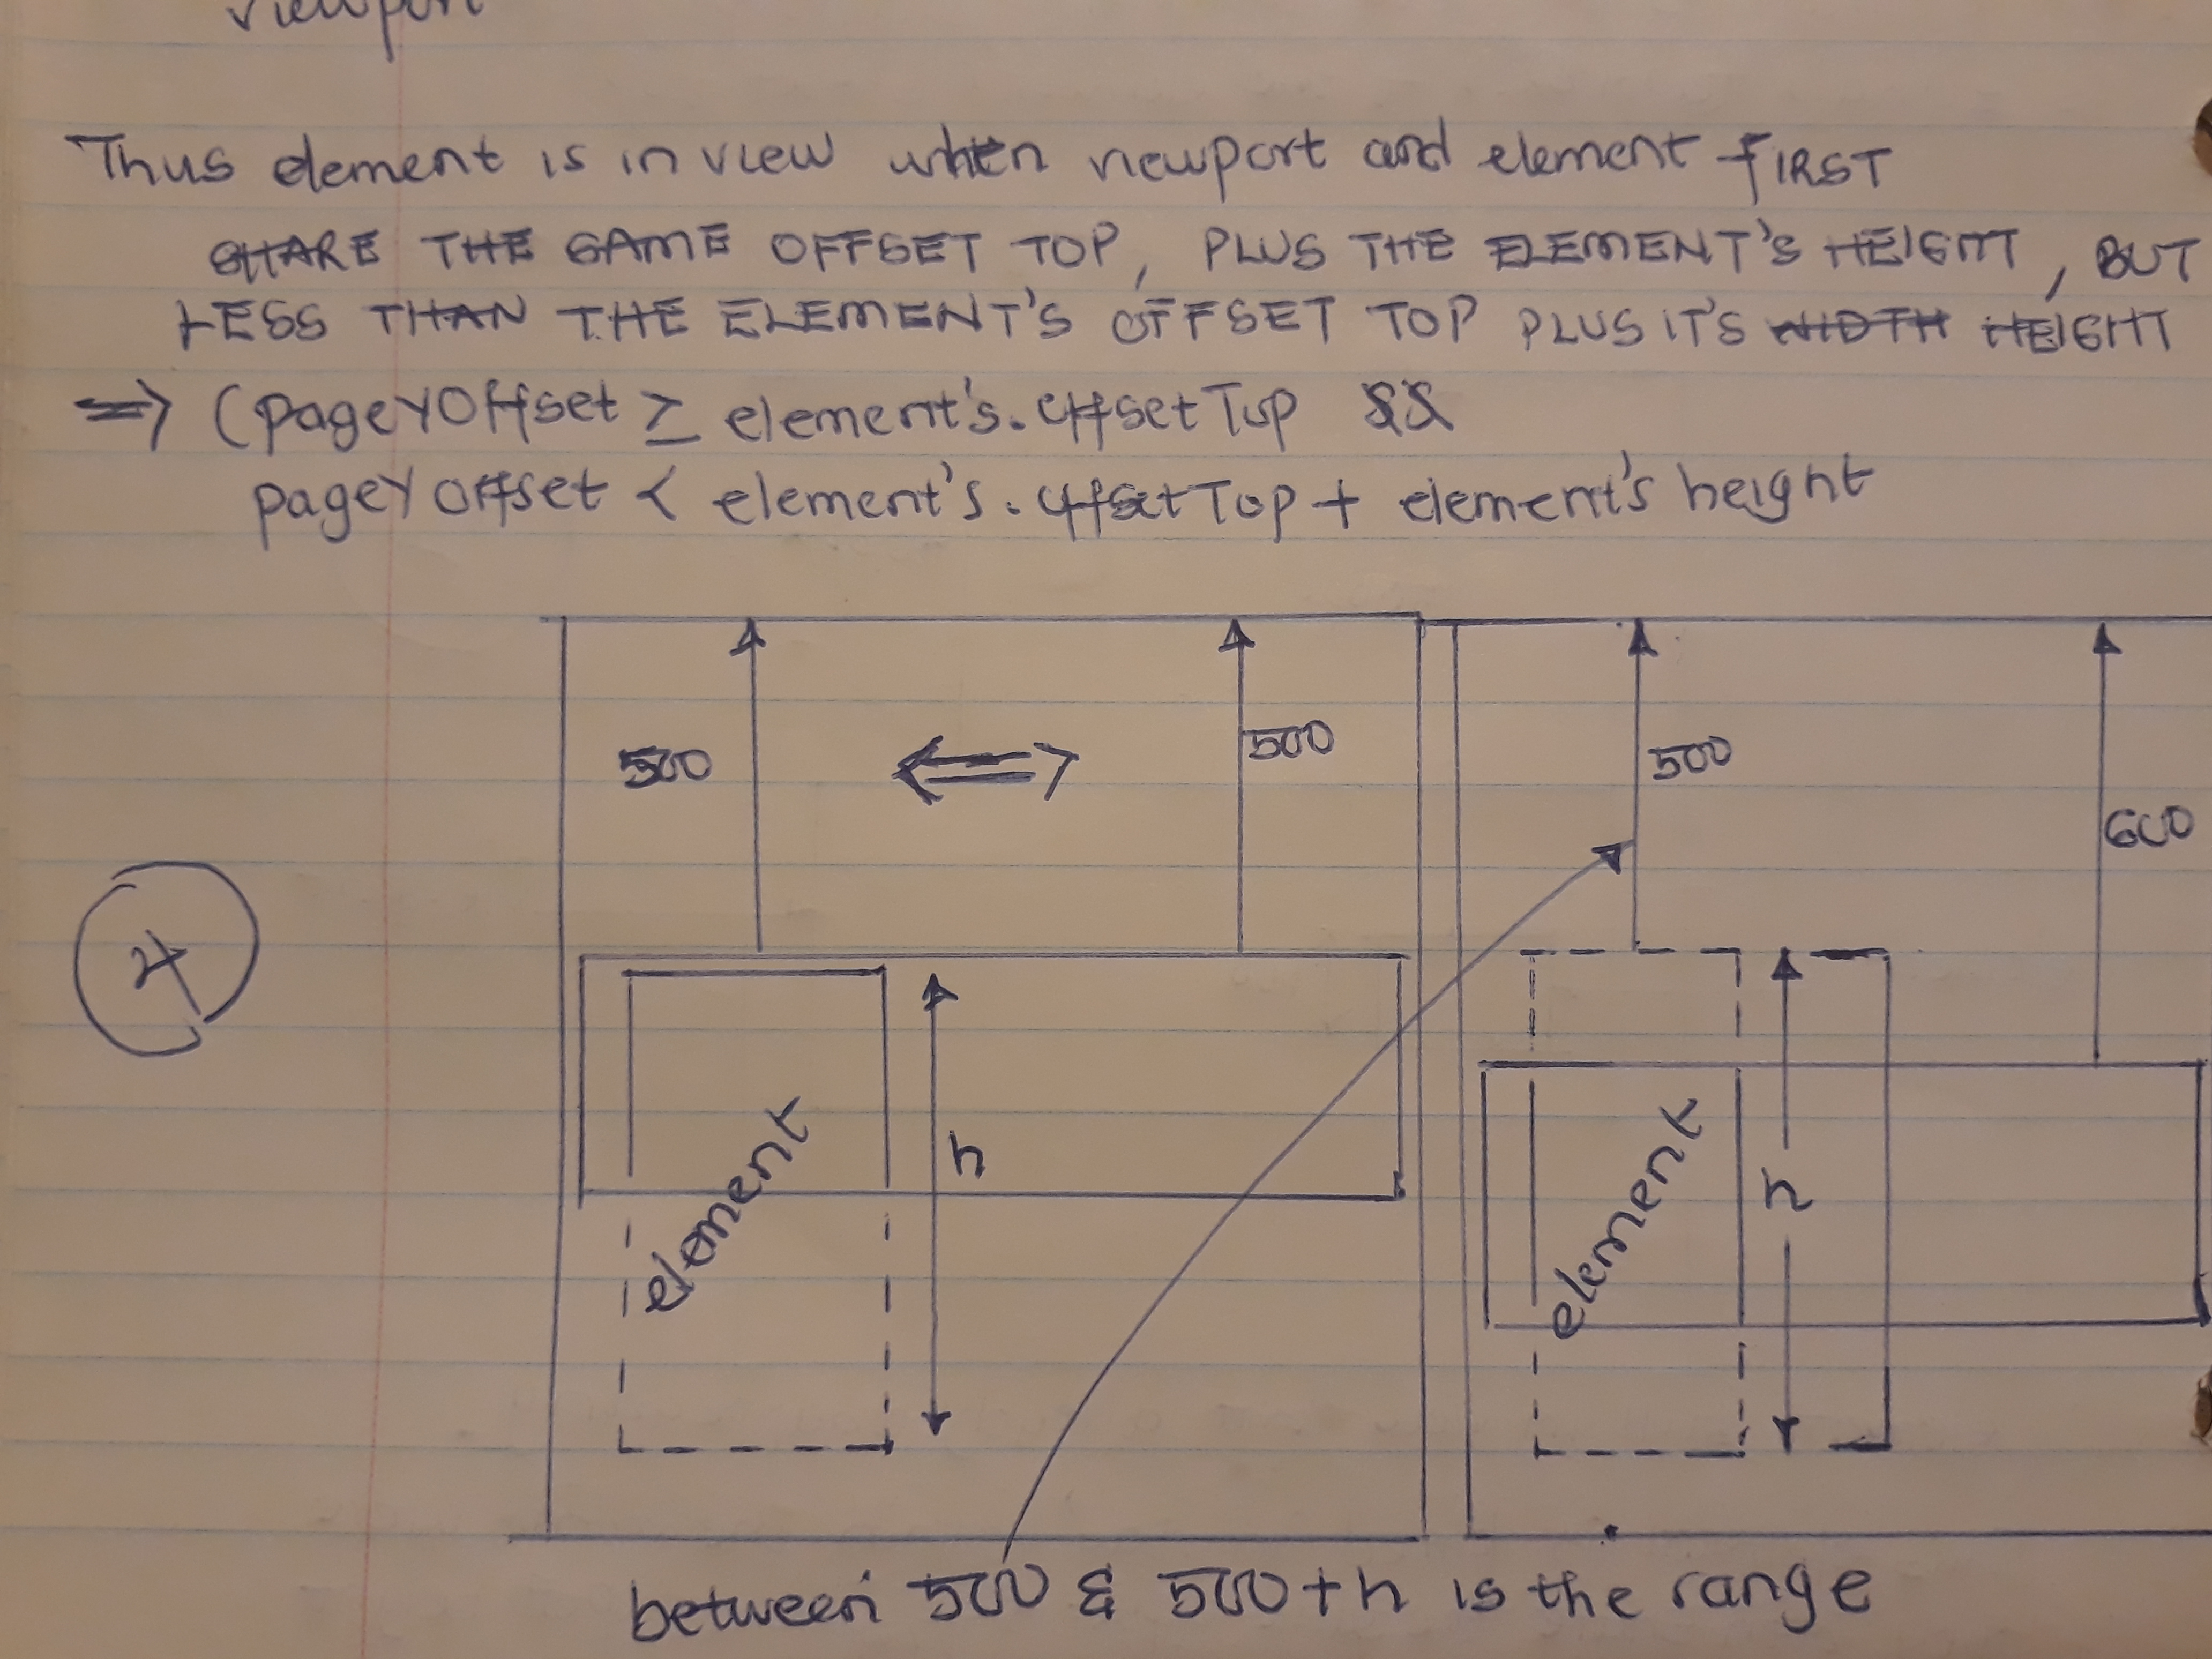 viewport
Thus element is in view when viewport and element FIRST
SHARE THE SAME OFFSET TOP, PLUS THE ELEMENT'S HEIGHT, BUT
LESS THAN THE ELEMENT'S OFFSET TOP PLUS IT'S WIDTH HEIGHT
⇒ (pageYOffset ≥ element's.offsetTop &&
pageYOffset < element's.offsetTop + element's height
500
500
500
600
4
h
element
h
element
between 500 & 500+h is the range